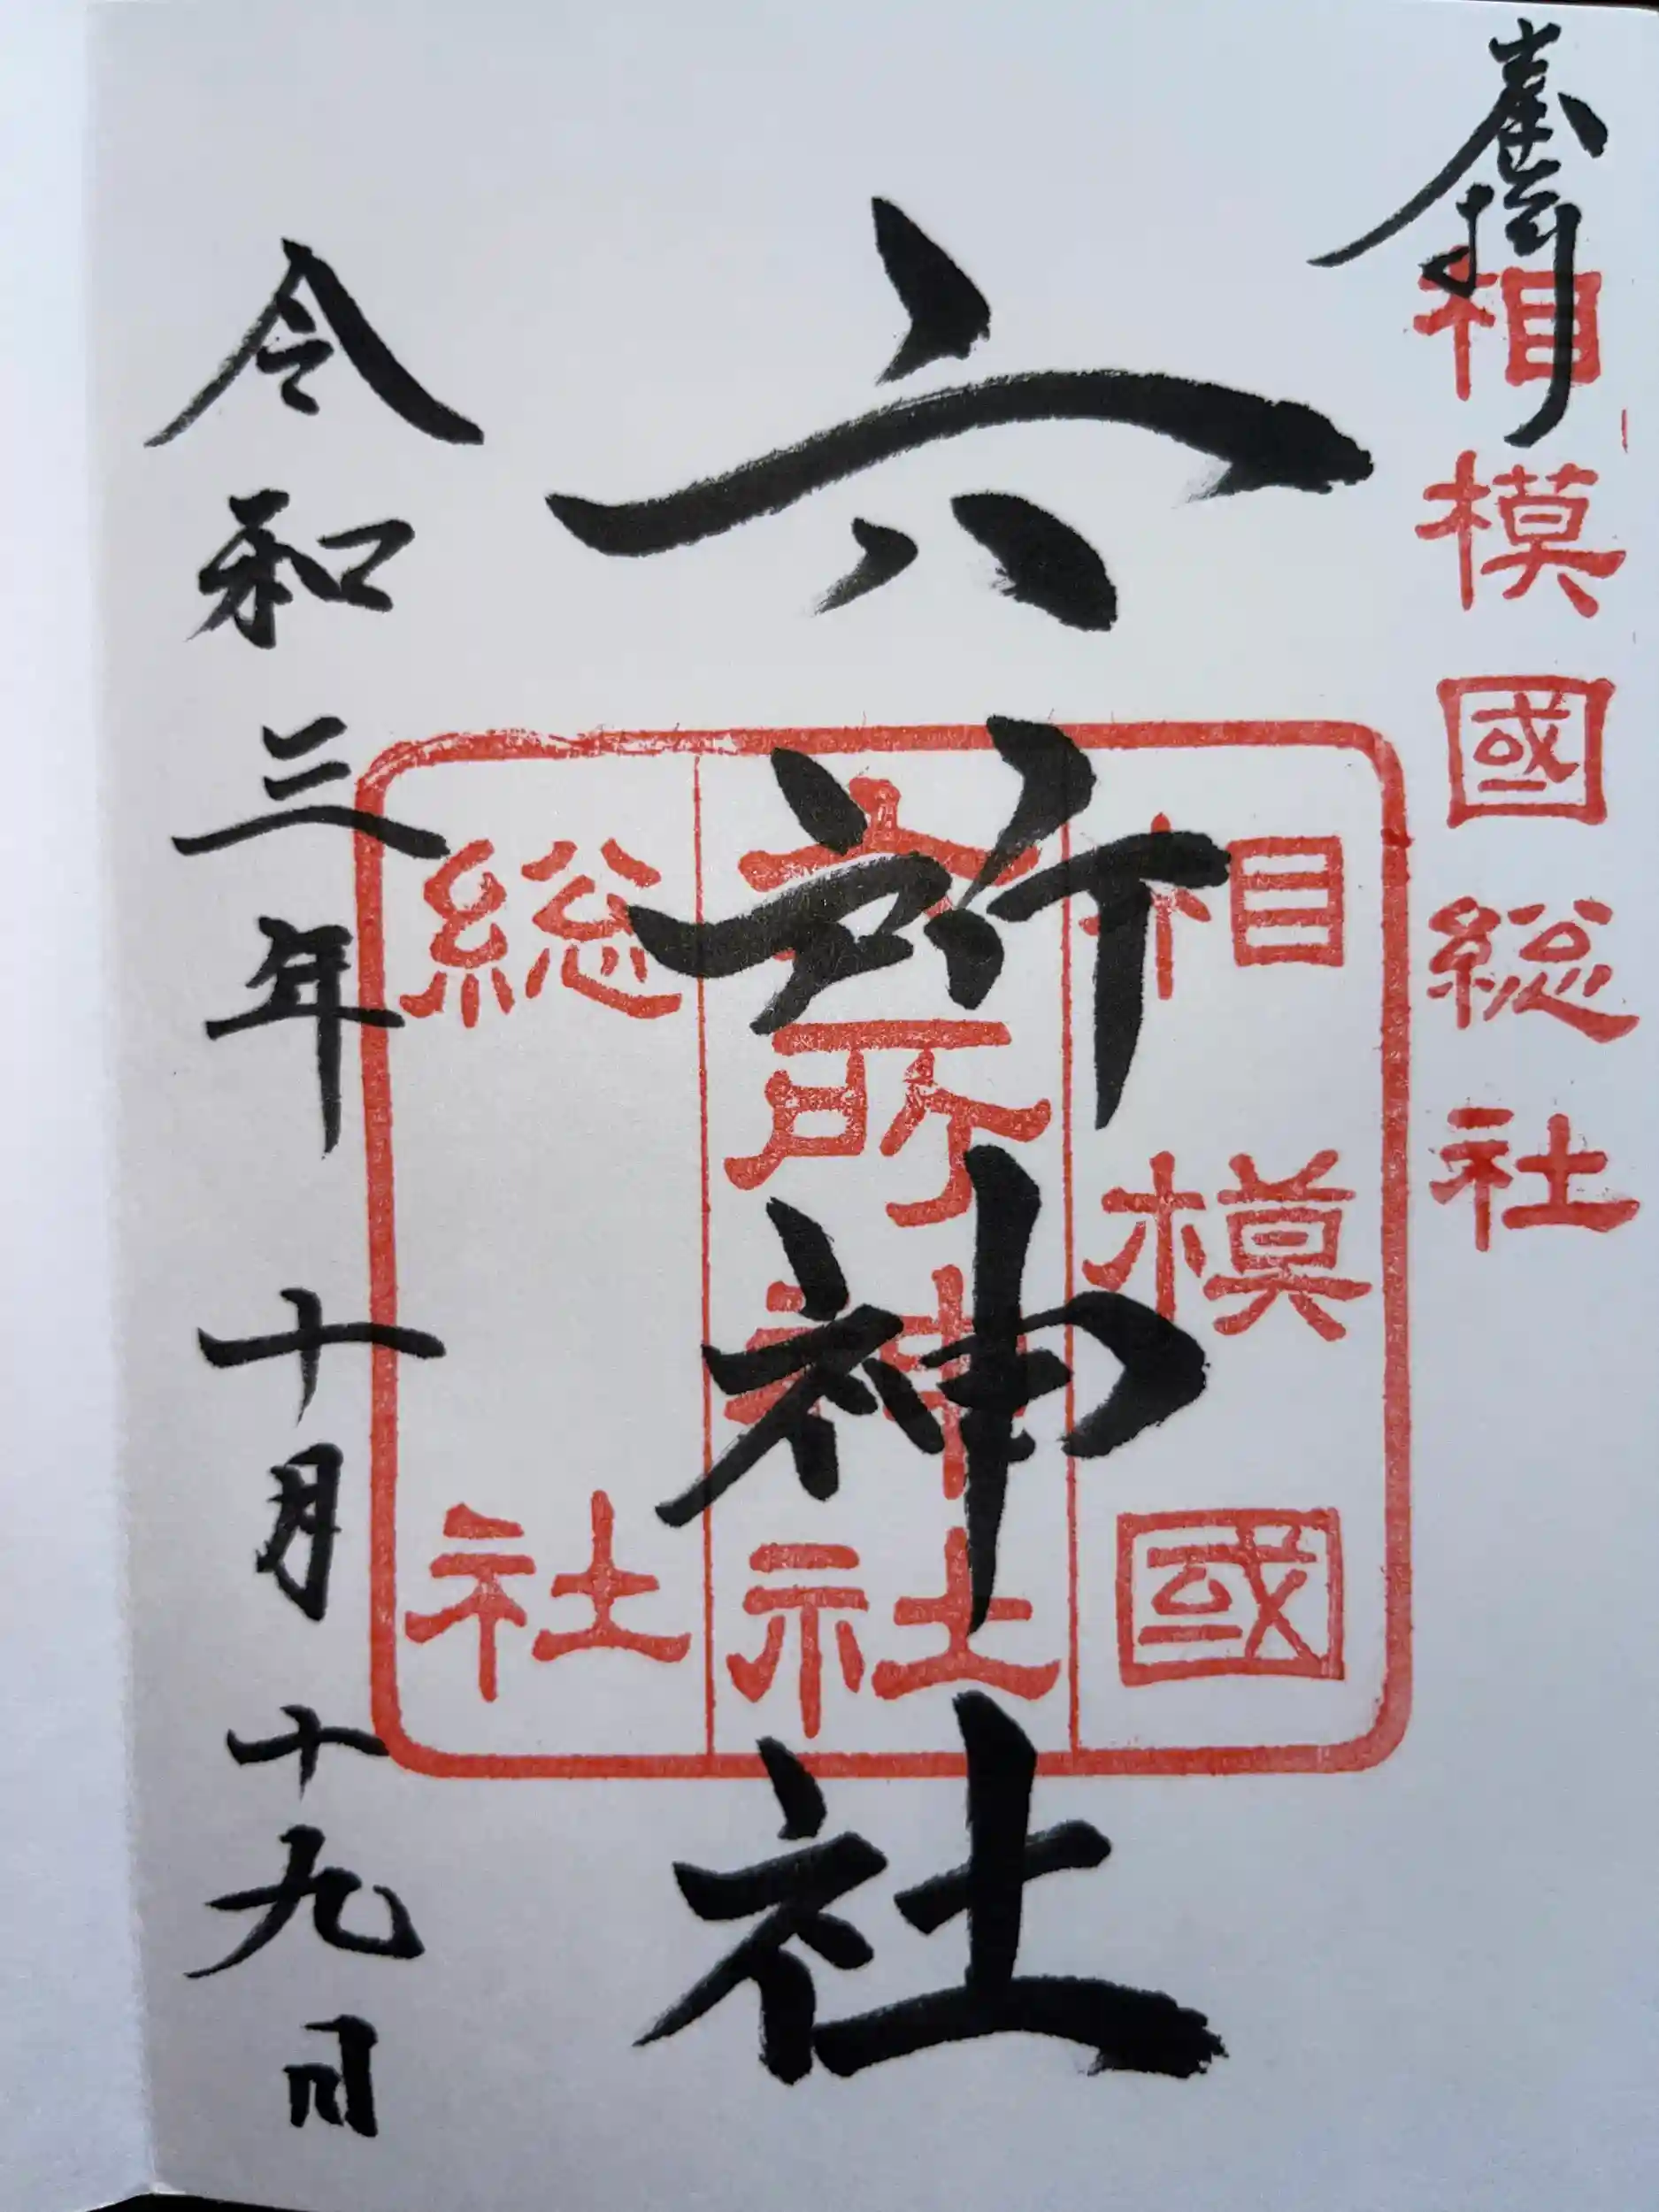 奉拝
相模國総社
六所神社
相模國
六所神社
総社
令和三年十月十九日